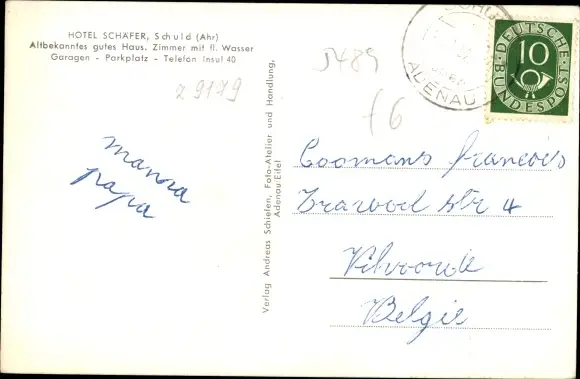 HOTEL SCHÄFER, Schuld (Ahr)
Altbekanntes gutes Haus. Zimmer mit fl. Wasser
Garagen - Parkplatz - Telefon Insul 40
z 9179
mama
papa
Verlag Andreas Schiefen, Foto-Atelier und Handlung,
Adenau/Eifel
f6
ADENAU
DEUTSCHE
10
BUNDESPOST
Coomans francois
str 4
Vilvoorde
Belgie